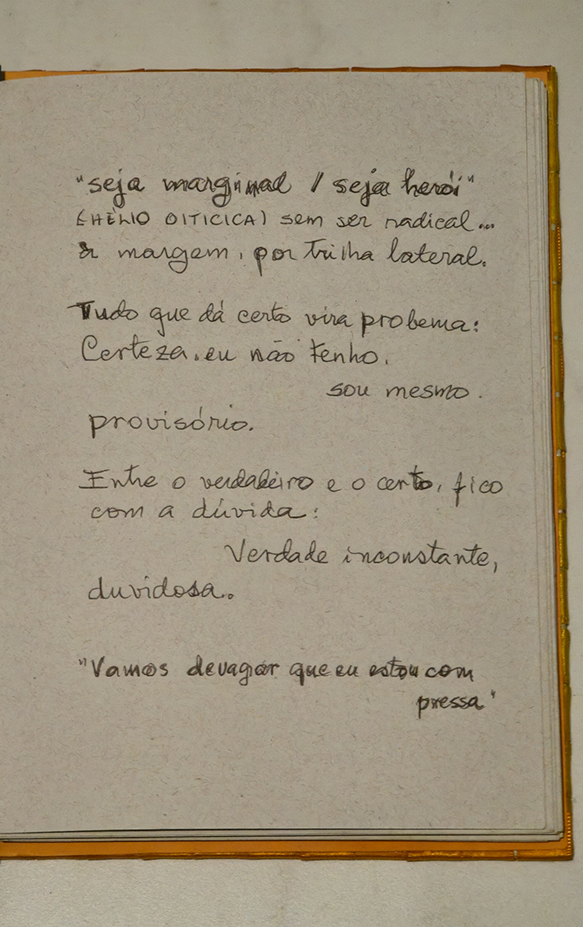 "seja marginal / seja herói"
(HÉLIO OITICICA) sem ser radical...
à margem, por trilha lateral.
Tudo que dá certo vira probema:
Certeza, eu não tenho.
sou mesmo.
provisório.
Entre o verdadeiro e o certo, fico
com a dúvida:
Verdade inconstante,
duvidosa..
"Vamos devagar que eu estou com
pressa"